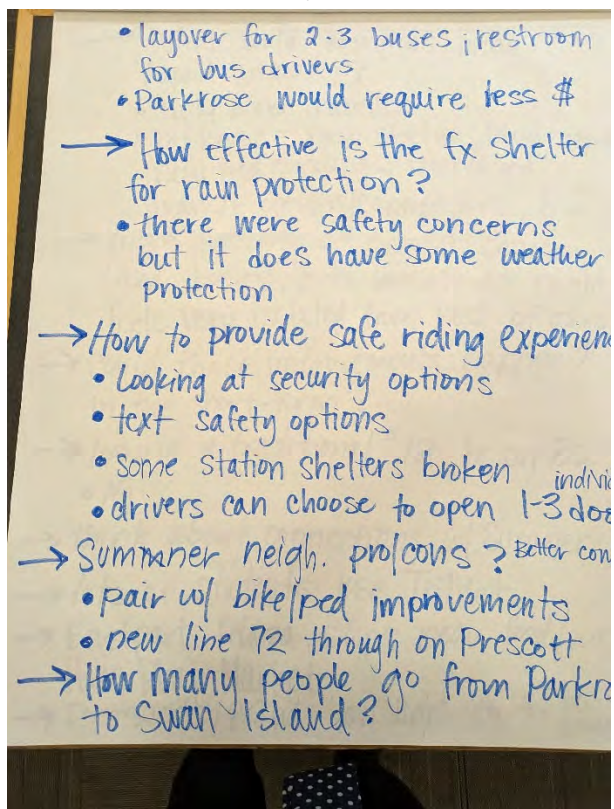 • layover for 2-3 buses; restroom
for bus drivers
• Parkrose would require less $
→ How effective is the fx shelter
for rain protection?
• there were safety concerns
but it does have some weather
protection
→ How to provide safe riding experien
• Looking at security options
• text safety options
• some station shelters broken
individ
• drivers can choose to open 1-3 doo
→ Summner neigh. pro/cons? Better con
• pair w/ bike/ped improvements
• new line 72 through on Prescott
→ How many people go from Parkro
to Swan Island?